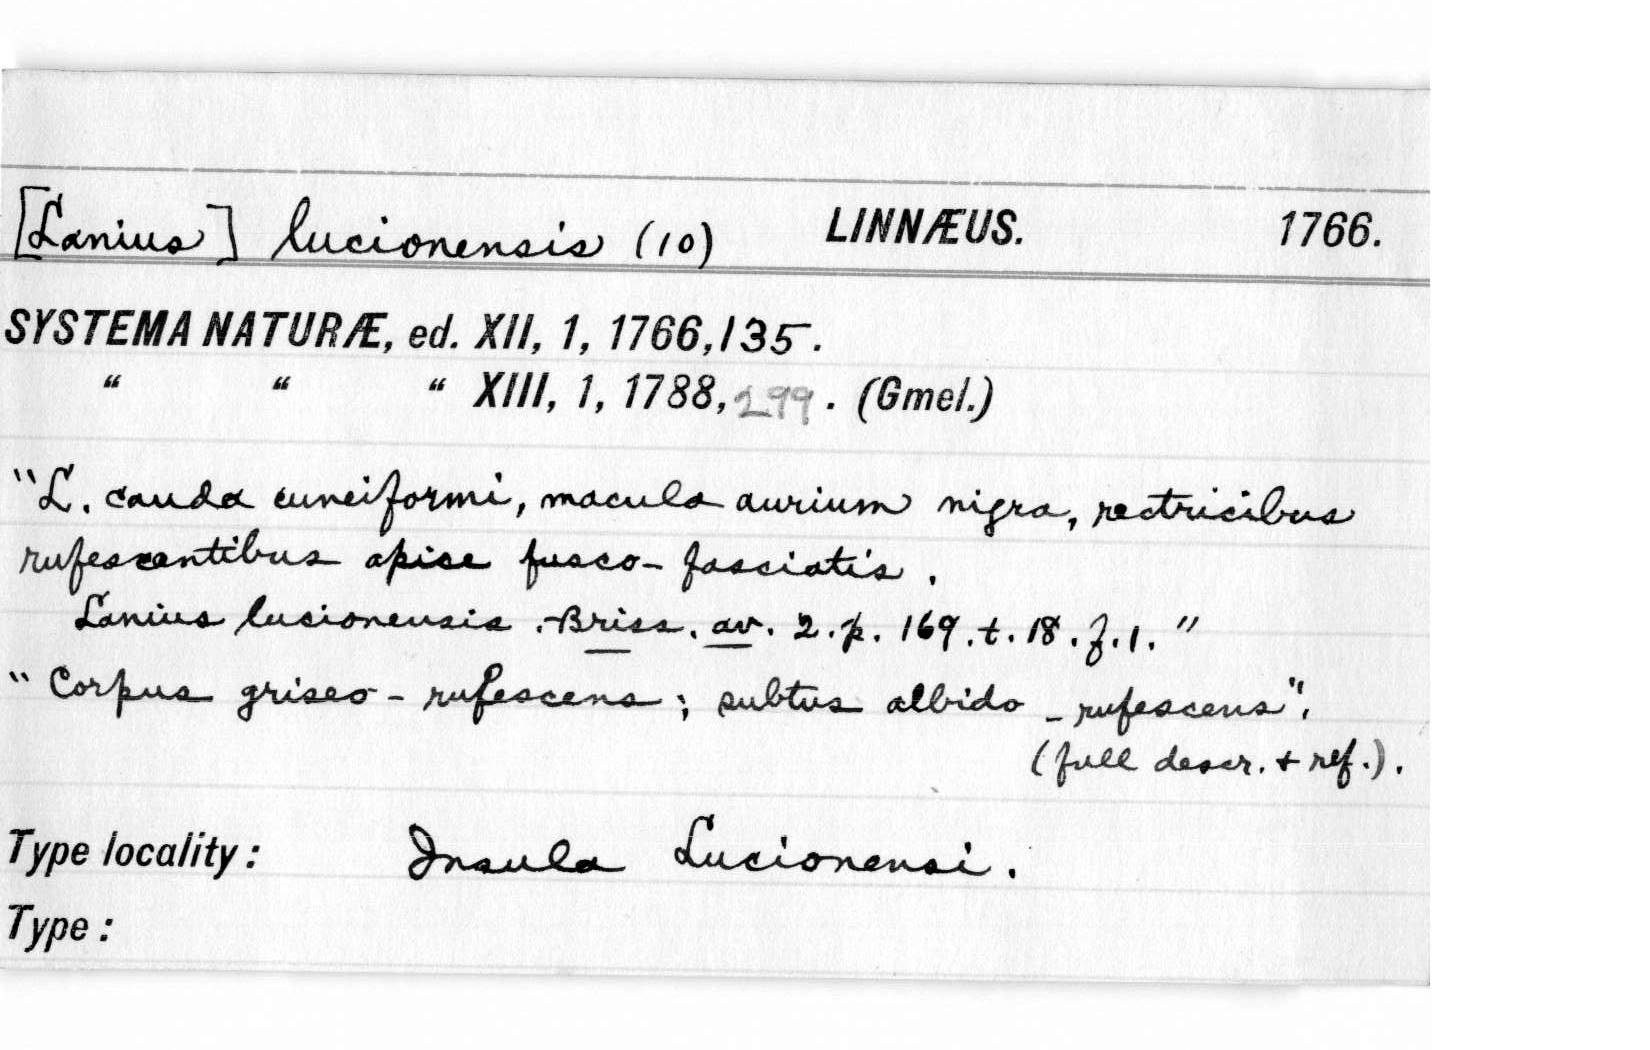 [Lanius] lucionensis (10) LINNÆUS. 1766.
SYSTEMA NATURÆ, ed. XII, 1, 1766, 135.
“ “ “ XIII, 1, 1788, 299. (Gmel.)
"L. cauda cuneiformi, macula aurium nigra, rectricibus
rufescentibus apice fusco-fasciatis.
Lanius lucionensis. Briss. av. 2. p. 169. t. 18. f. 1."
"Corpus griseo-rufescens; subtus albido-rufescens".
(full descr. + ref.).
Type locality: Insula Lucionensi.
Type: